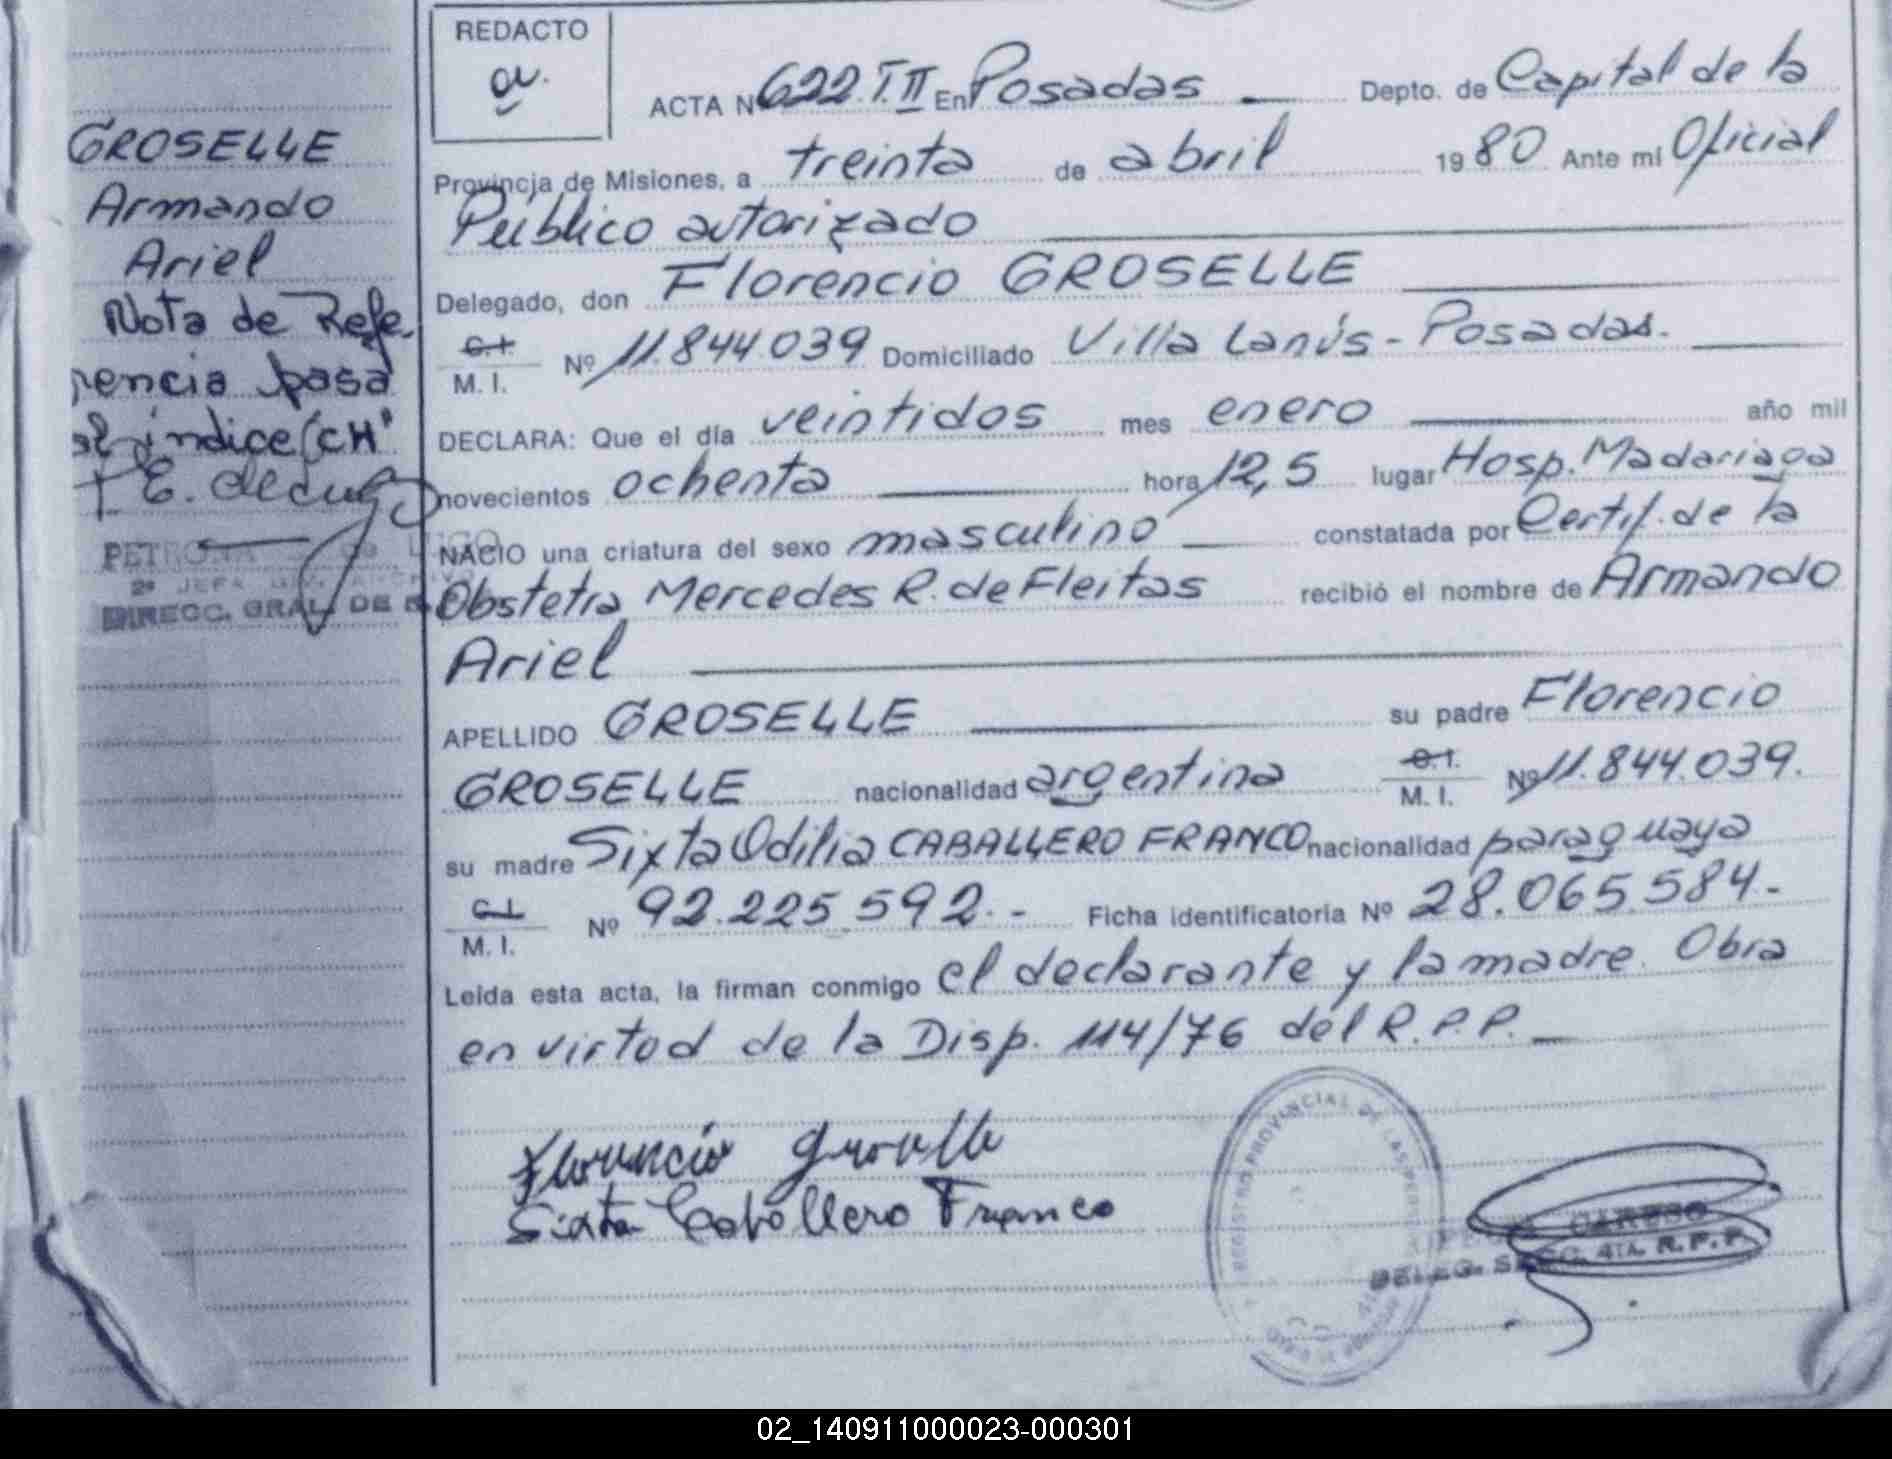 REDACTO
ACTA Nº 622 T. II En Posadas Depto. de Capital de la
Provincia de Misiones, a treinta de abril 1980 Ante mi Oficial
Público autorizado
Delegado, don Florencio GROSELLE
C.I. M.I. Nº 11.844.039 Domiciliado Villa Lanús - Posadas.
DECLARA: Que el día veintidos mes enero año mil
novecientos ochenta hora 12,5 lugar Hosp. Madariaga
NACIO una criatura del sexo masculino constatada por Certif. de la
Obstetra Mercedes R. de Fleitas recibió el nombre de Armando
Ariel
APELLIDO GROSELLE su padre Florencio
GROSELLE nacionalidad argentina C.I. M.I. Nº 11.844.039.
su madre Sixta Odilia CABALLERO FRANCO nacionalidad paraguaya
C.I. M.I. Nº 92.225.592.- Ficha identificatoria Nº 28.065.584.-
Leida esta acta, la firman conmigo el declarante y la madre. Obra
en virtud de la Disp. 114/76 del R.P.P.
Florencio Groselle
Sixta Caballero Franco
REGISTRO PROVINCIAL DE LAS
CARUSO
DELEG. SECC. 4TA. R.P.P.
GROSELLE
Armando
Ariel
Nota de Refe-
rencia pasa
al índice "CH"
2ª JEFA
DIRECC. GRAL. DE
02_140911000023-000301